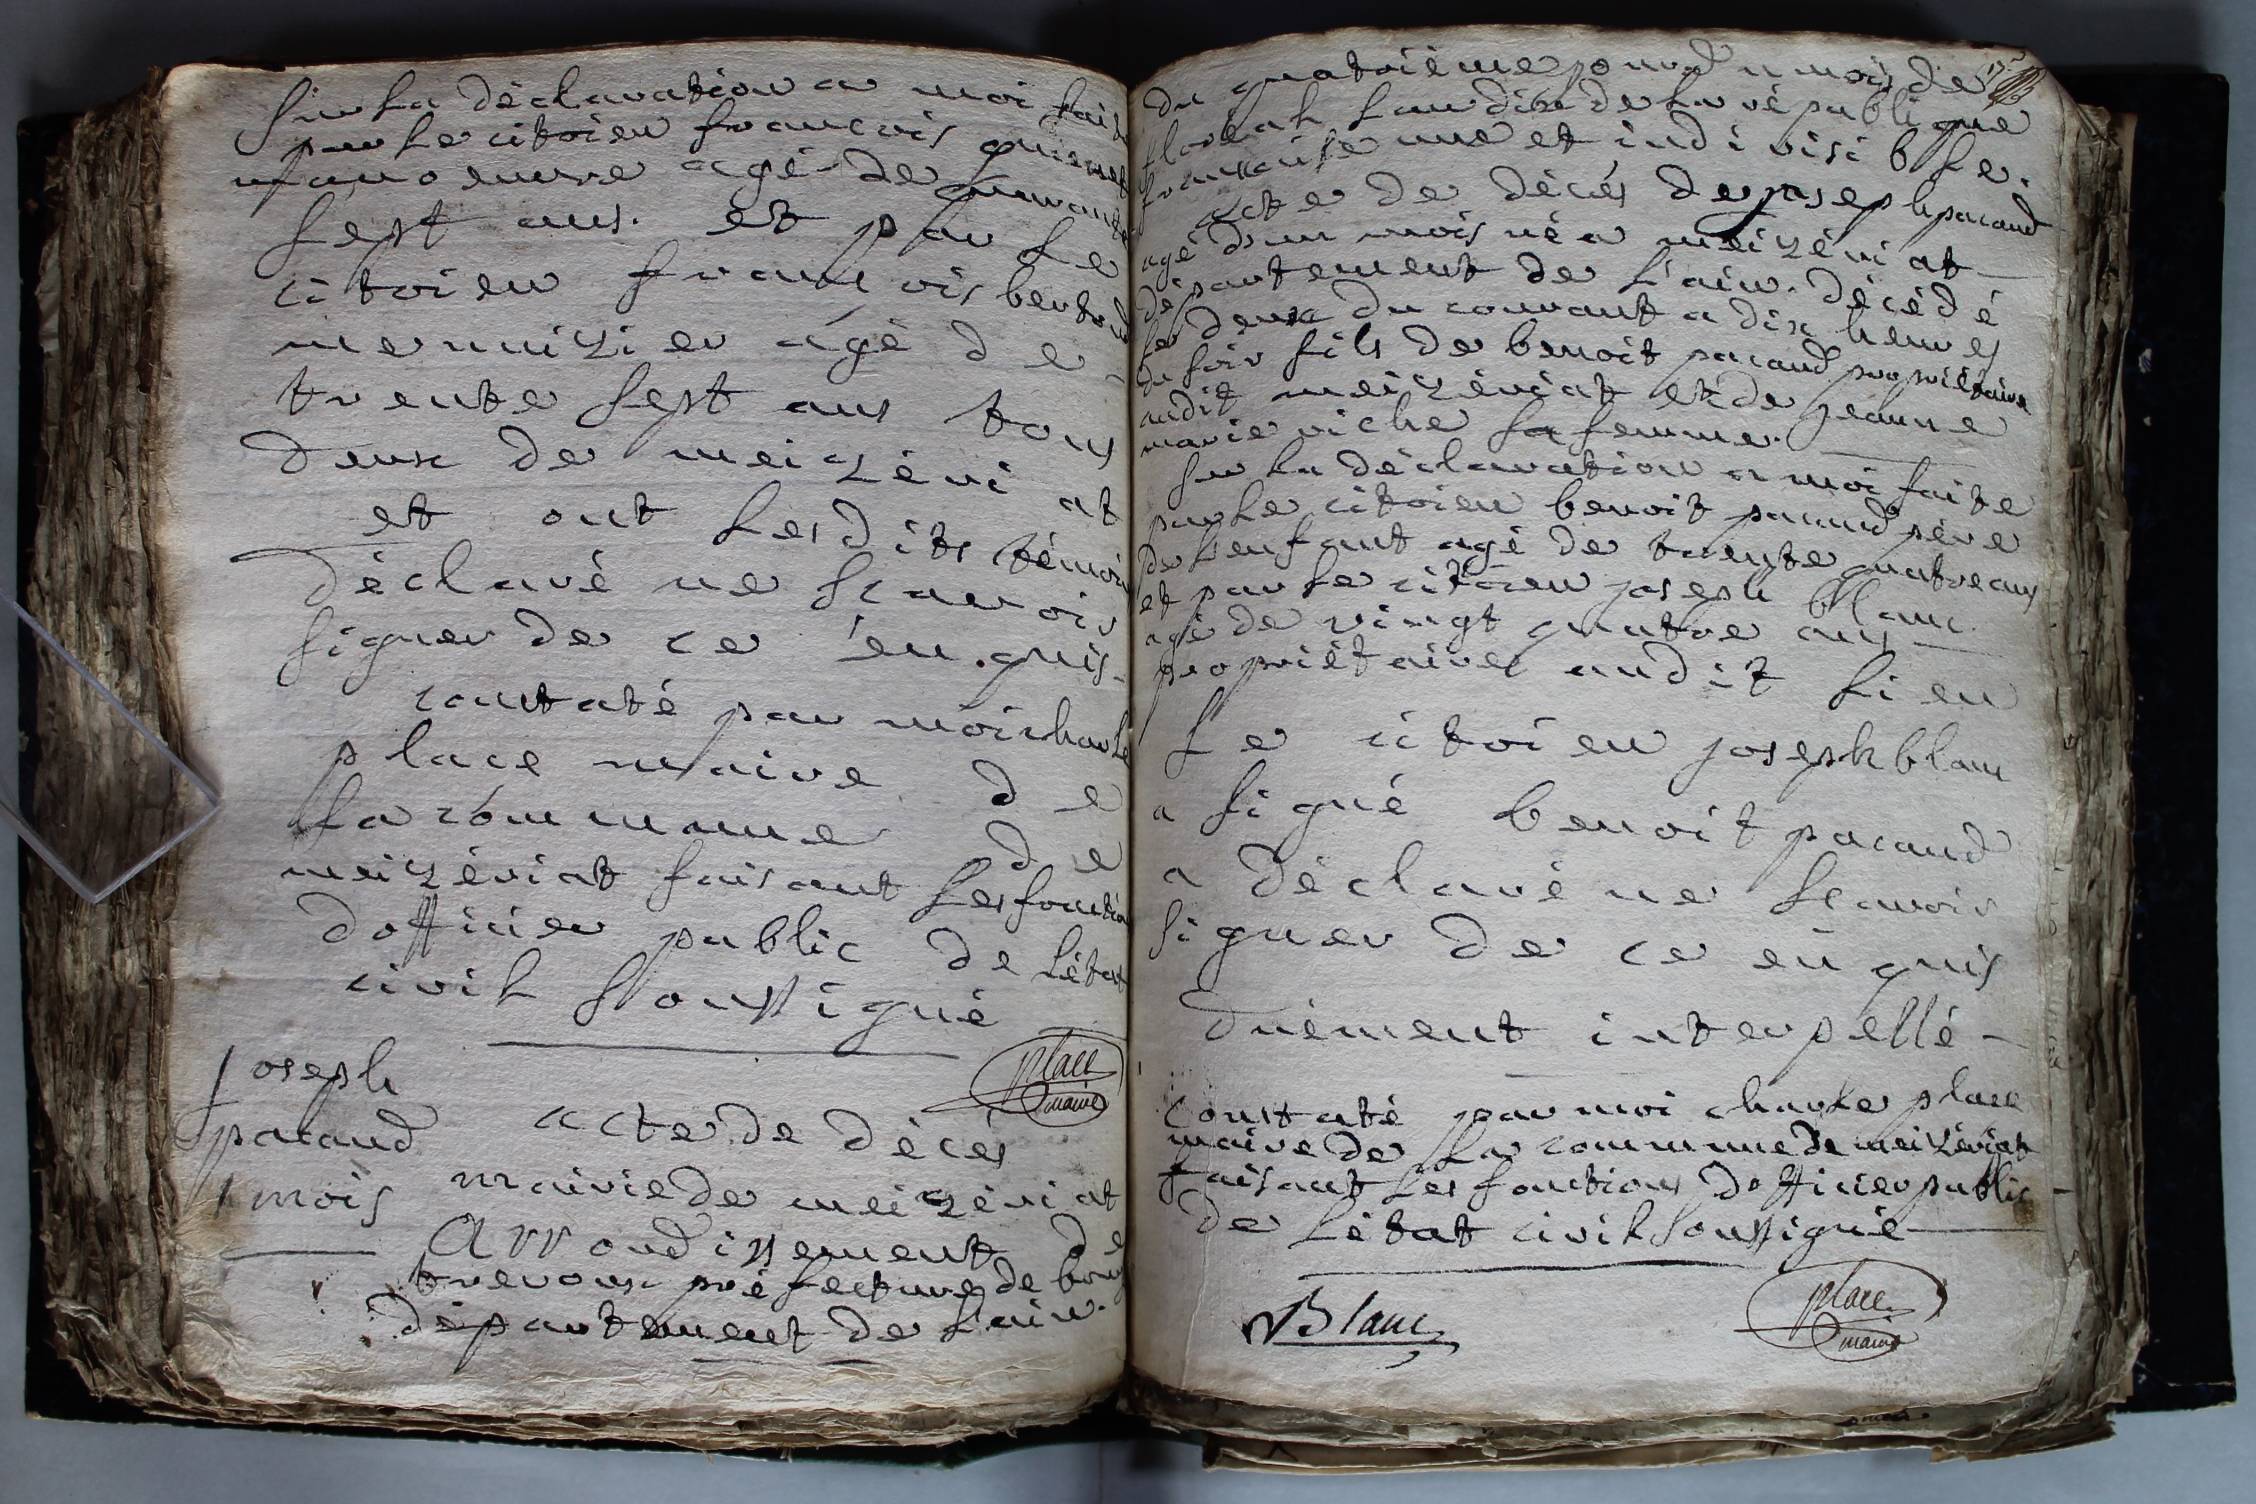 Sur la déclaration a moi faite
par le citoien francois
manoeuvre agé de
Sept ans. et par le
citoien francois
menuizier agé de
trente Sept ans tous
deux de meizériat
et ont Lesdits témoins
déclaré ne Scavoir
Signer de ce enquis
contaté par moi charle
place maire de
La commune de
meizériat faisant Les fonctions
dofficier public de Létat
civil Soussigné
place
maire
joseph
pacaud
1 mois
acte de décés
mairie de meizériat
Arrondissement de
trevoux préfecture de bourg
département de L'ain.
du quatrième jour du mois de
floréal L'an dix de La république
francaise une et indivisible.
acte de décés de joseph pacaud
agé d'un mois né a meizériat
département de L'ain. décédé
Le deux du courant a dix heures
du soir fils de benoit pacaud propriétaire
audit meizériat et de jeanne
marie viche Sa femme.
Sur La déclaration a moi faite
par Le citoien benoit pacaud père
de L'enfant agé de trente quatre ans
et par Le citoien joseph blanc
agé de vingt quatre ans
propriétaires audit Lieu
Le citoien joseph blanc
a Signé benoit pacaud
a déclaré ne Scavoir
Signer de ce enquis
duement interpellé
constaté par moi charle place
maire de La commune de meizériat
faisant Les fonctions dofficier public
de Létat civil Soussigné
Blanc
place
maire